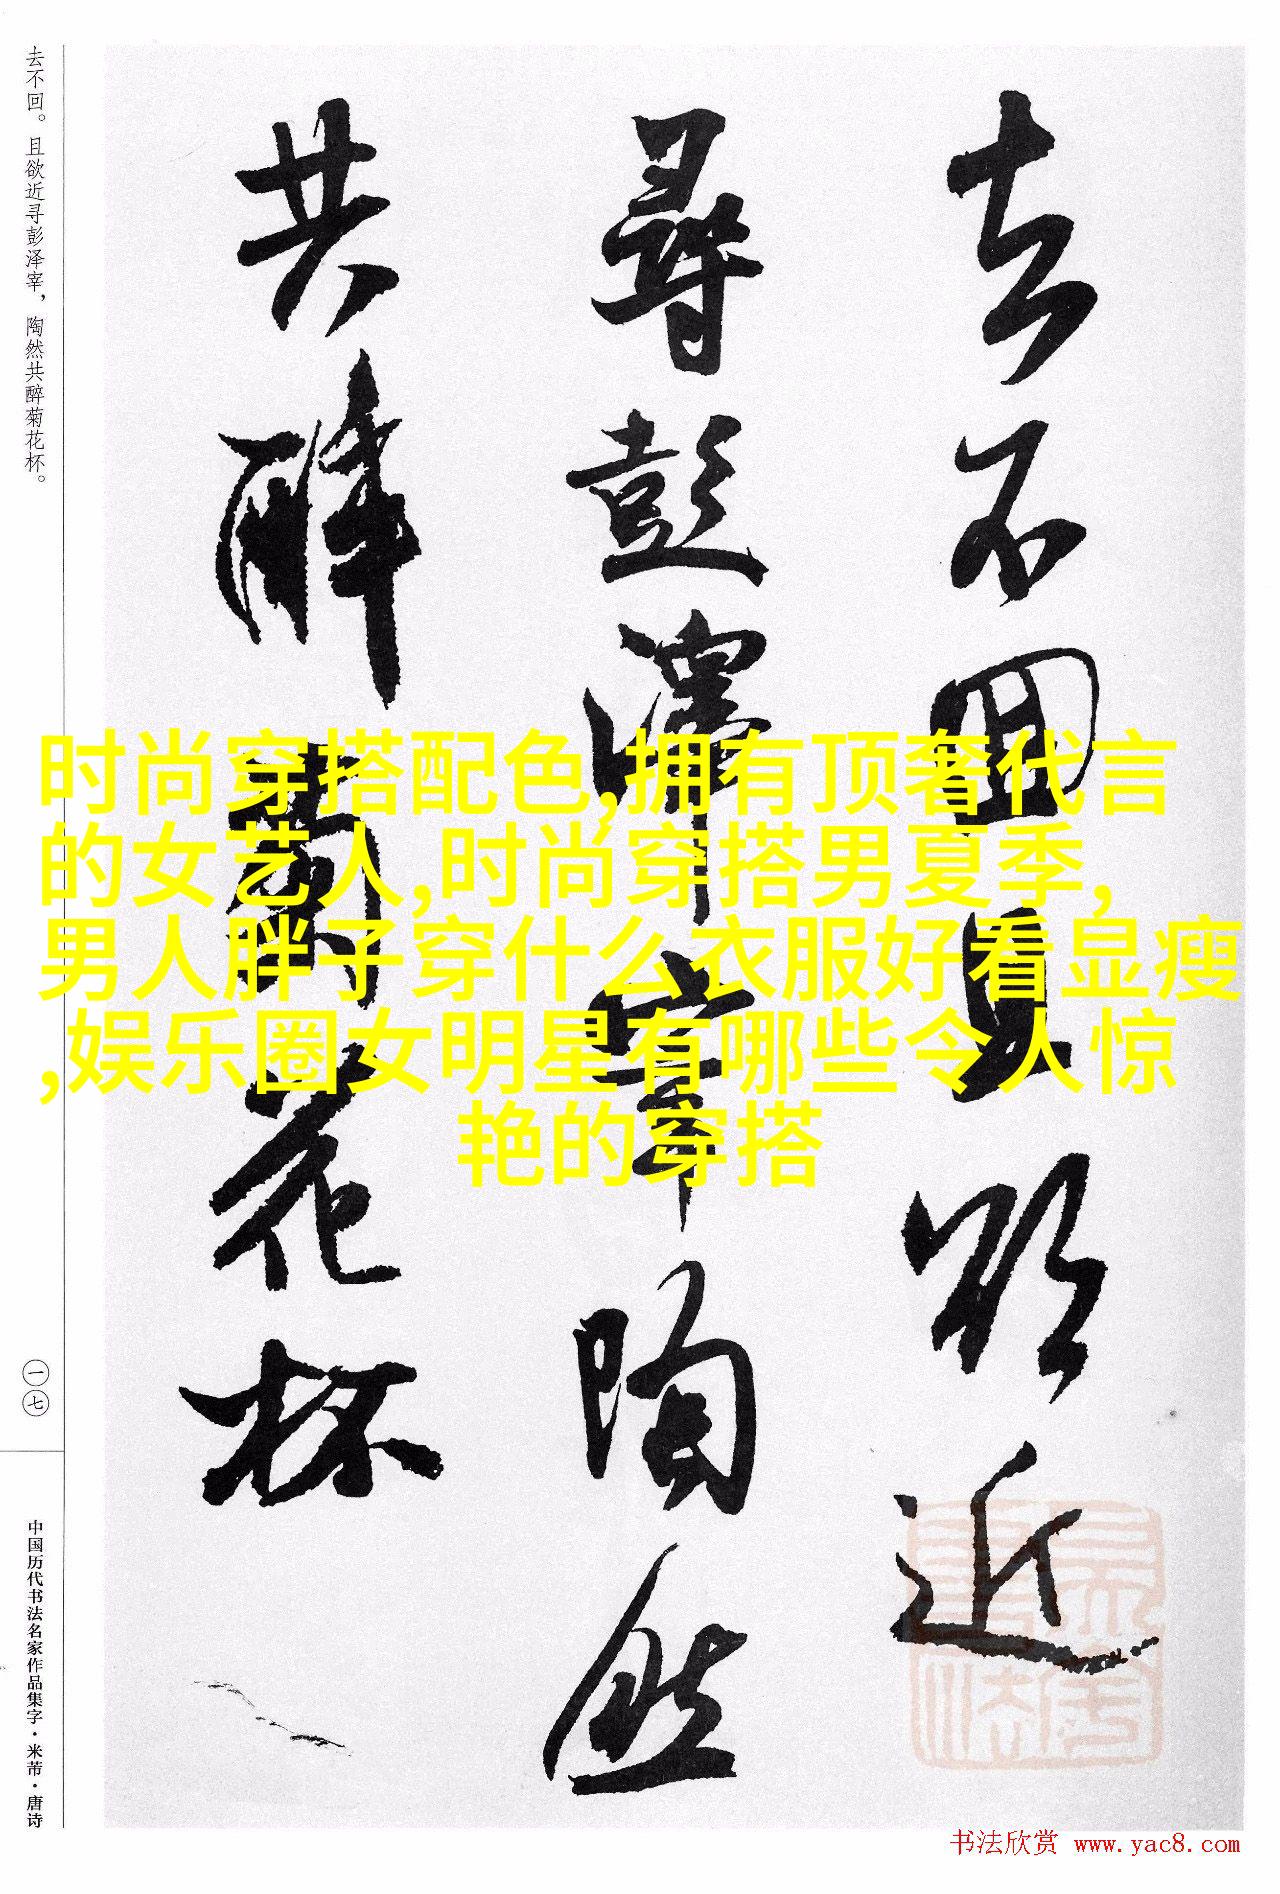 去不回且欲近
尋彭澤宰陶然
共醉菊花杯
去不回。且欲近寻彭泽宰，陶然共醉菊花杯。
一七
中国历代书法名家作品集字·米芾·唐诗
时尚穿搭配色,拥有顶奢代言
的女艺人,时尚穿搭男夏季,
男人胖子穿什么衣服好看显瘦
,娱乐圈女明星有哪些令人惊
艳的穿搭
书法欣赏 www.yac8.com